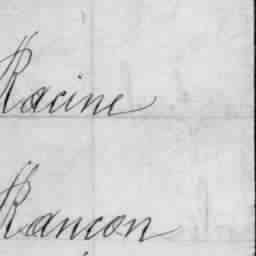 Racine
Rancon